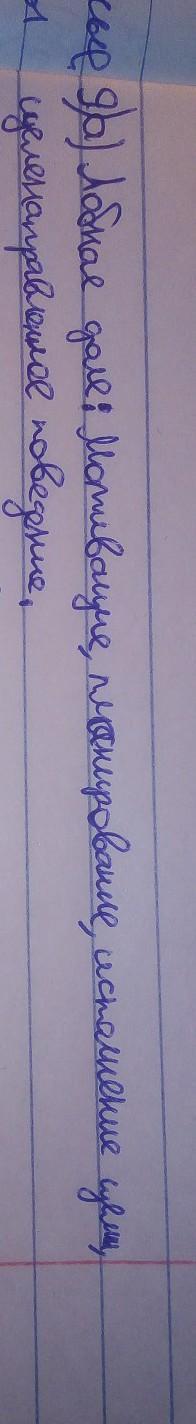 9)а) Лобная доля: Мотивация, планирование, исполнение целей,
целенаправленное поведение.